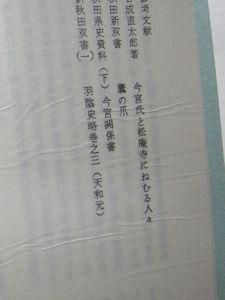 考文献
成直太郎著 今宮氏と松庵寺にねむる人々
田新双書 鷹の爪
秋田県史資料(下) 今宮関係書
新秋田双書(一) 羽陰史略巻之三(天和元)